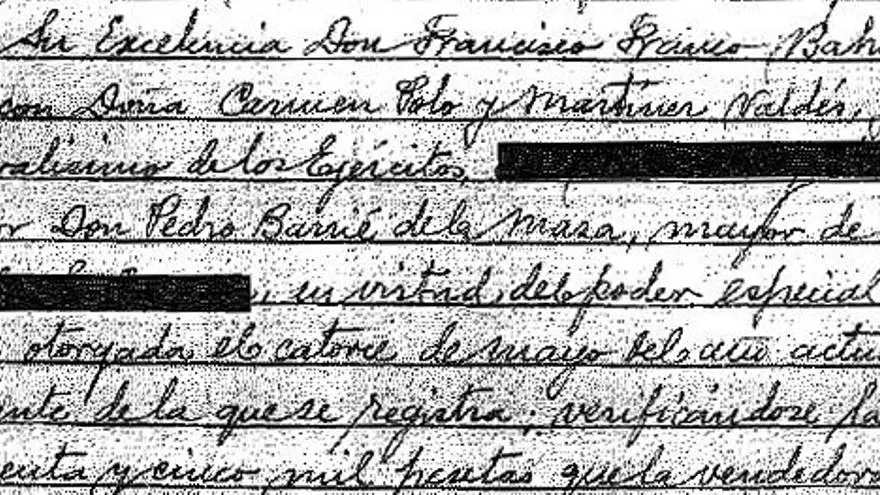 Su Excelencia Don Francisco Franco Bah
con Doña Carmen Polo y Martínez Valdés,
ralísimo de los Ejércitos,
or Don Pedro Barrié de la Maza, mayor de
, en virtud, del poder especial
otorgada el catorce de mayo del año actu
ente de la que se registra; verificándose la
enta y cinco mil pesetas que la vendedora